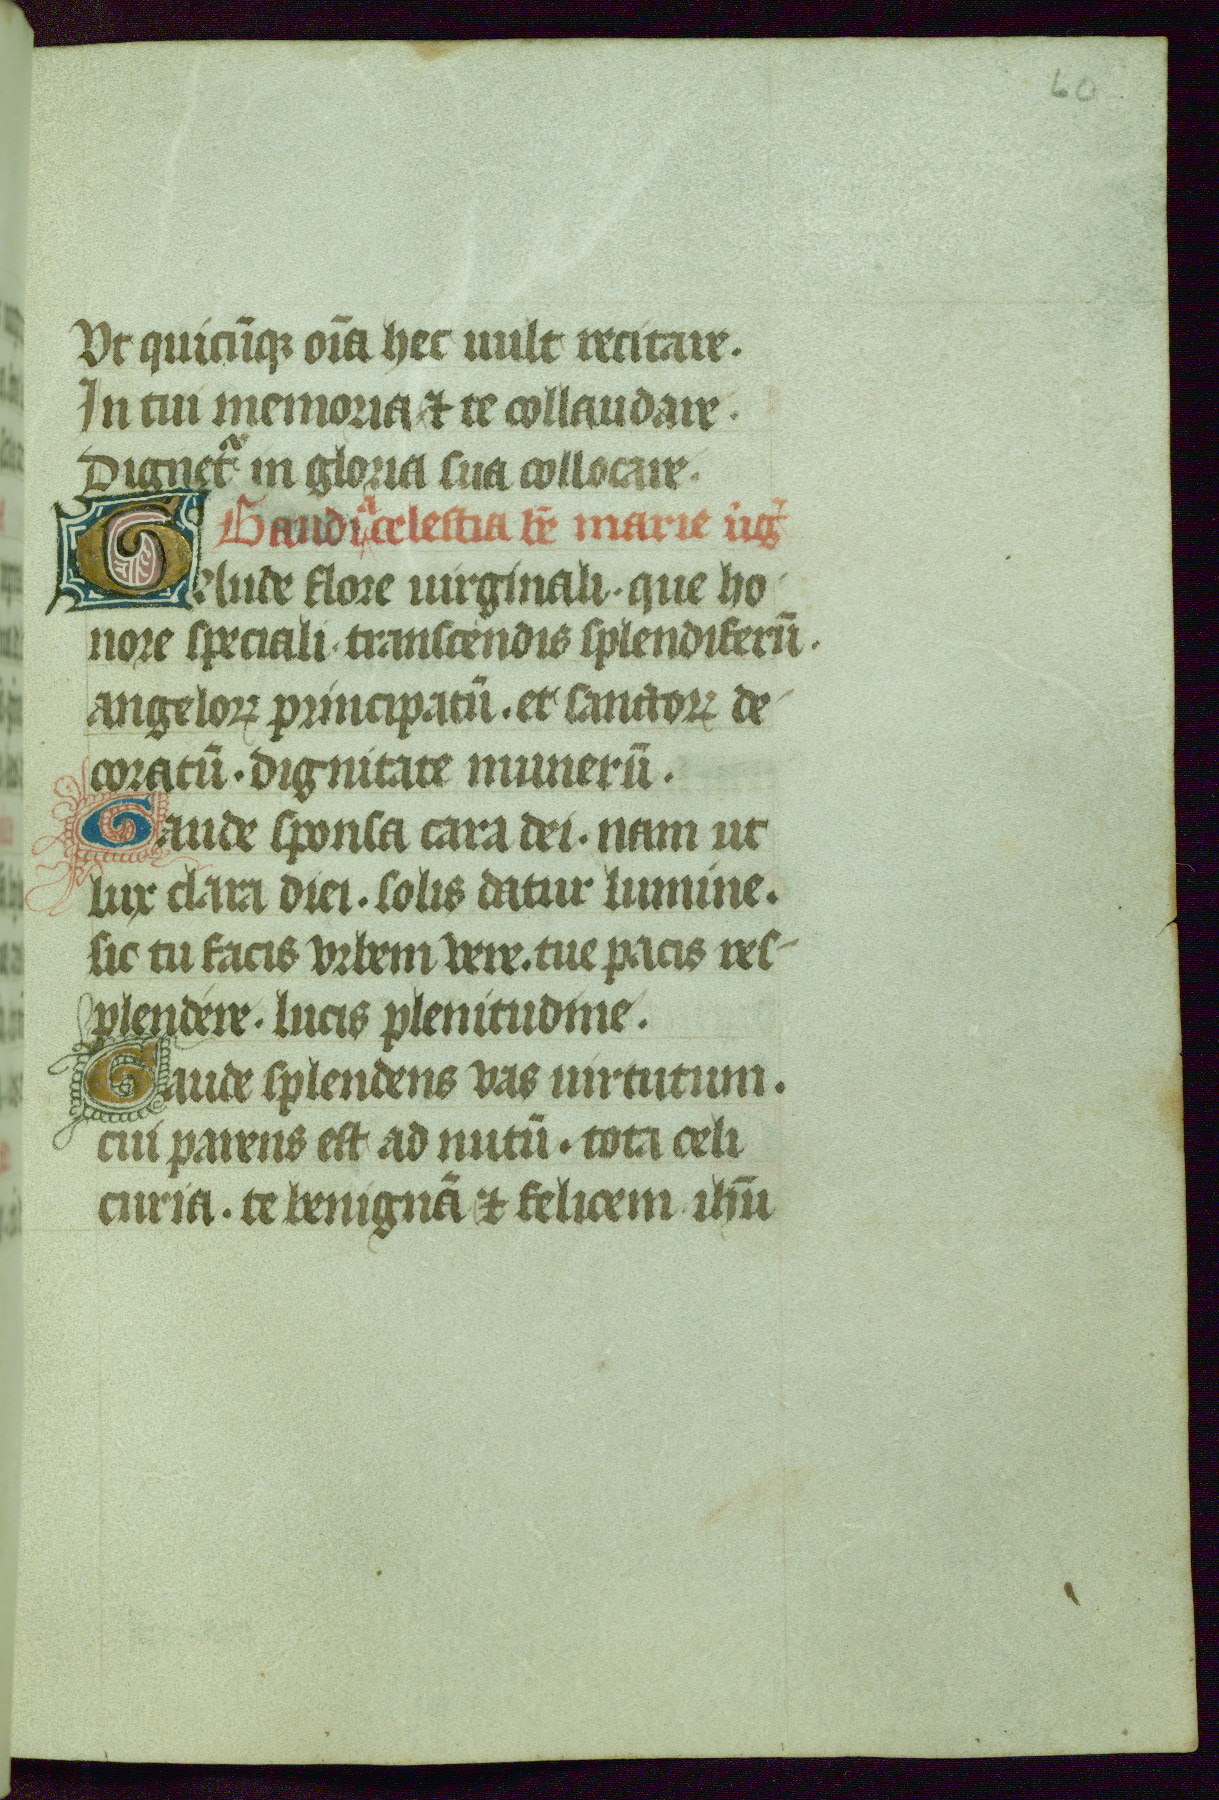 60
Vt quicūqꝫ oīa hec uult recitare.
In tui memoria ⁊ te collaudare.
Dignetᷓ in gloria sua collocare.
Gaudia celestia bē marie uīgͥ
Gelude flore uirginali. que ho
nore speciali. transcendis splendiferū.
angeloꝝ principatū. et sanctoꝝ de-
coratū. dignitate munerū.
Gaude sponsa cara dei. nam ut
lux clara diei. solis datur lumine.
sic tu facis vrbem vere. tue pacis res-
plendere. lucis plenitudine.
Gaude splendens vas uirtutum.
cui parens est ad nutū. tota celi
curia. te benignā ⁊ felicem ihū